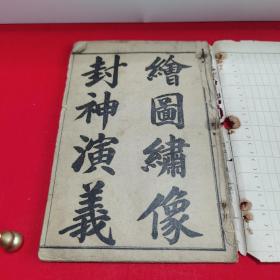 繪圖繡像
封神演義